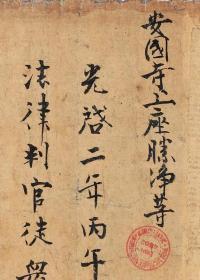 安國寺上座勝淨等
光啓二年丙午
法律判官徒眾